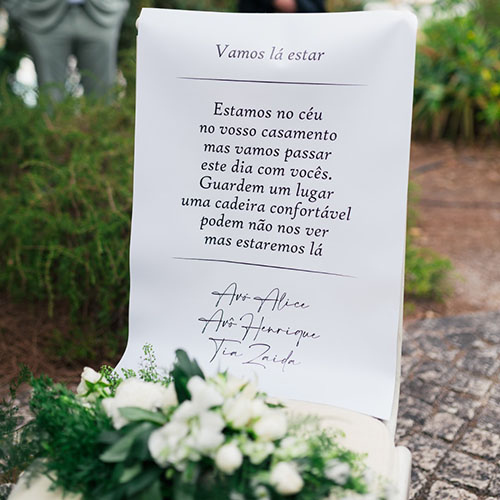 Vamos lá estar
Estamos no céu
no vosso casamento
mas vamos passar
este dia com vocês.
Guardem um lugar
uma cadeira confortável
podem não nos ver
mas estaremos lá
Avó Alice
Avô Henrique
Tia Zaida